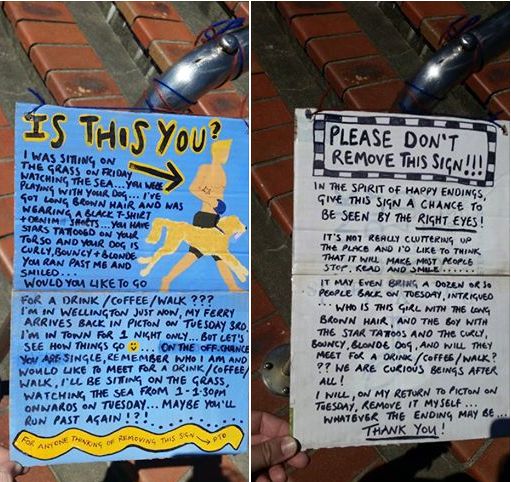 IS THIS YOU?
I WAS SITTING ON
THE GRASS ON FRIDAY
WATCHING THE SEA... YOU WERE
PLAYING WITH YOUR DOG... I'VE
GOT LONG BROWN HAIR AND WAS
WEARING A BLACK T-SHIRT
+ DENIM SHORTS... YOU HAVE
STARS TATTOOED ON YOUR
TORSO AND YOUR DOG IS
CURLY, BOUNCY + BLONDE.
YOU RAN PAST ME AND
SMILED....
WOULD YOU LIKE TO GO
FOR A DRINK/COFFEE/WALK???
I'M IN WELLINGTON JUST NOW, MY FERRY
ARRIVES BACK IN PICTON ON TUESDAY 3RD.
I'M IN TOWN FOR 1 NIGHT ONLY... BUT LET'S
SEE HOW THINGS GO ☺ .... ON THE OFF. CHANCE
YOU ARE SINGLE, REMEMBER WHO I AM AND
WOULD LIKE TO MEET FOR A DRINK/COFFEE/
WALK, I'LL BE SITTING ON THE GRASS,
WATCHING THE SEA FROM 1-1.30pm
ONWARDS ON TUESDAY... MAYBE YOU'LL
RUN PAST AGAIN!?!
FOR ANYONE THINKING OF REMOVING THIS SIGN → PTO
PLEASE DON'T
REMOVE THIS SIGN!!!
IN THE SPIRIT OF HAPPY ENDINGS,
GIVE THIS SIGN A CHANCE TO
BE SEEN BY THE RIGHT EYES!
IT'S NOT REALLY CLUTTERING UP
THE PLACE AND I'D LIKE TO THINK
THAT IT WILL MAKE MOST PEOPLE
STOP, READ AND SMILE.......
IT MAY EVEN BRING A DOZEN OR SO
PEOPLE BACK ON TUESDAY, INTRIGUED
.. WHO IS THIS GIRL WITH THE LONG
BROWN HAIR, AND THE BOY WITH
THE STAR TATTOOS AND THE CURLY,
BOUNCY, BLONDE DOG, AND WILL THEY
MEET FOR A DRINK/COFFEE/WALK?
?? WE ARE CURIOUS BEINGS AFTER
ALL!
I WILL, ON MY RETURN TO PICTON ON
TUESDAY, REMOVE IT MYSELF...
WHATEVER THE ENDING MAY BE...
THANK YOU!